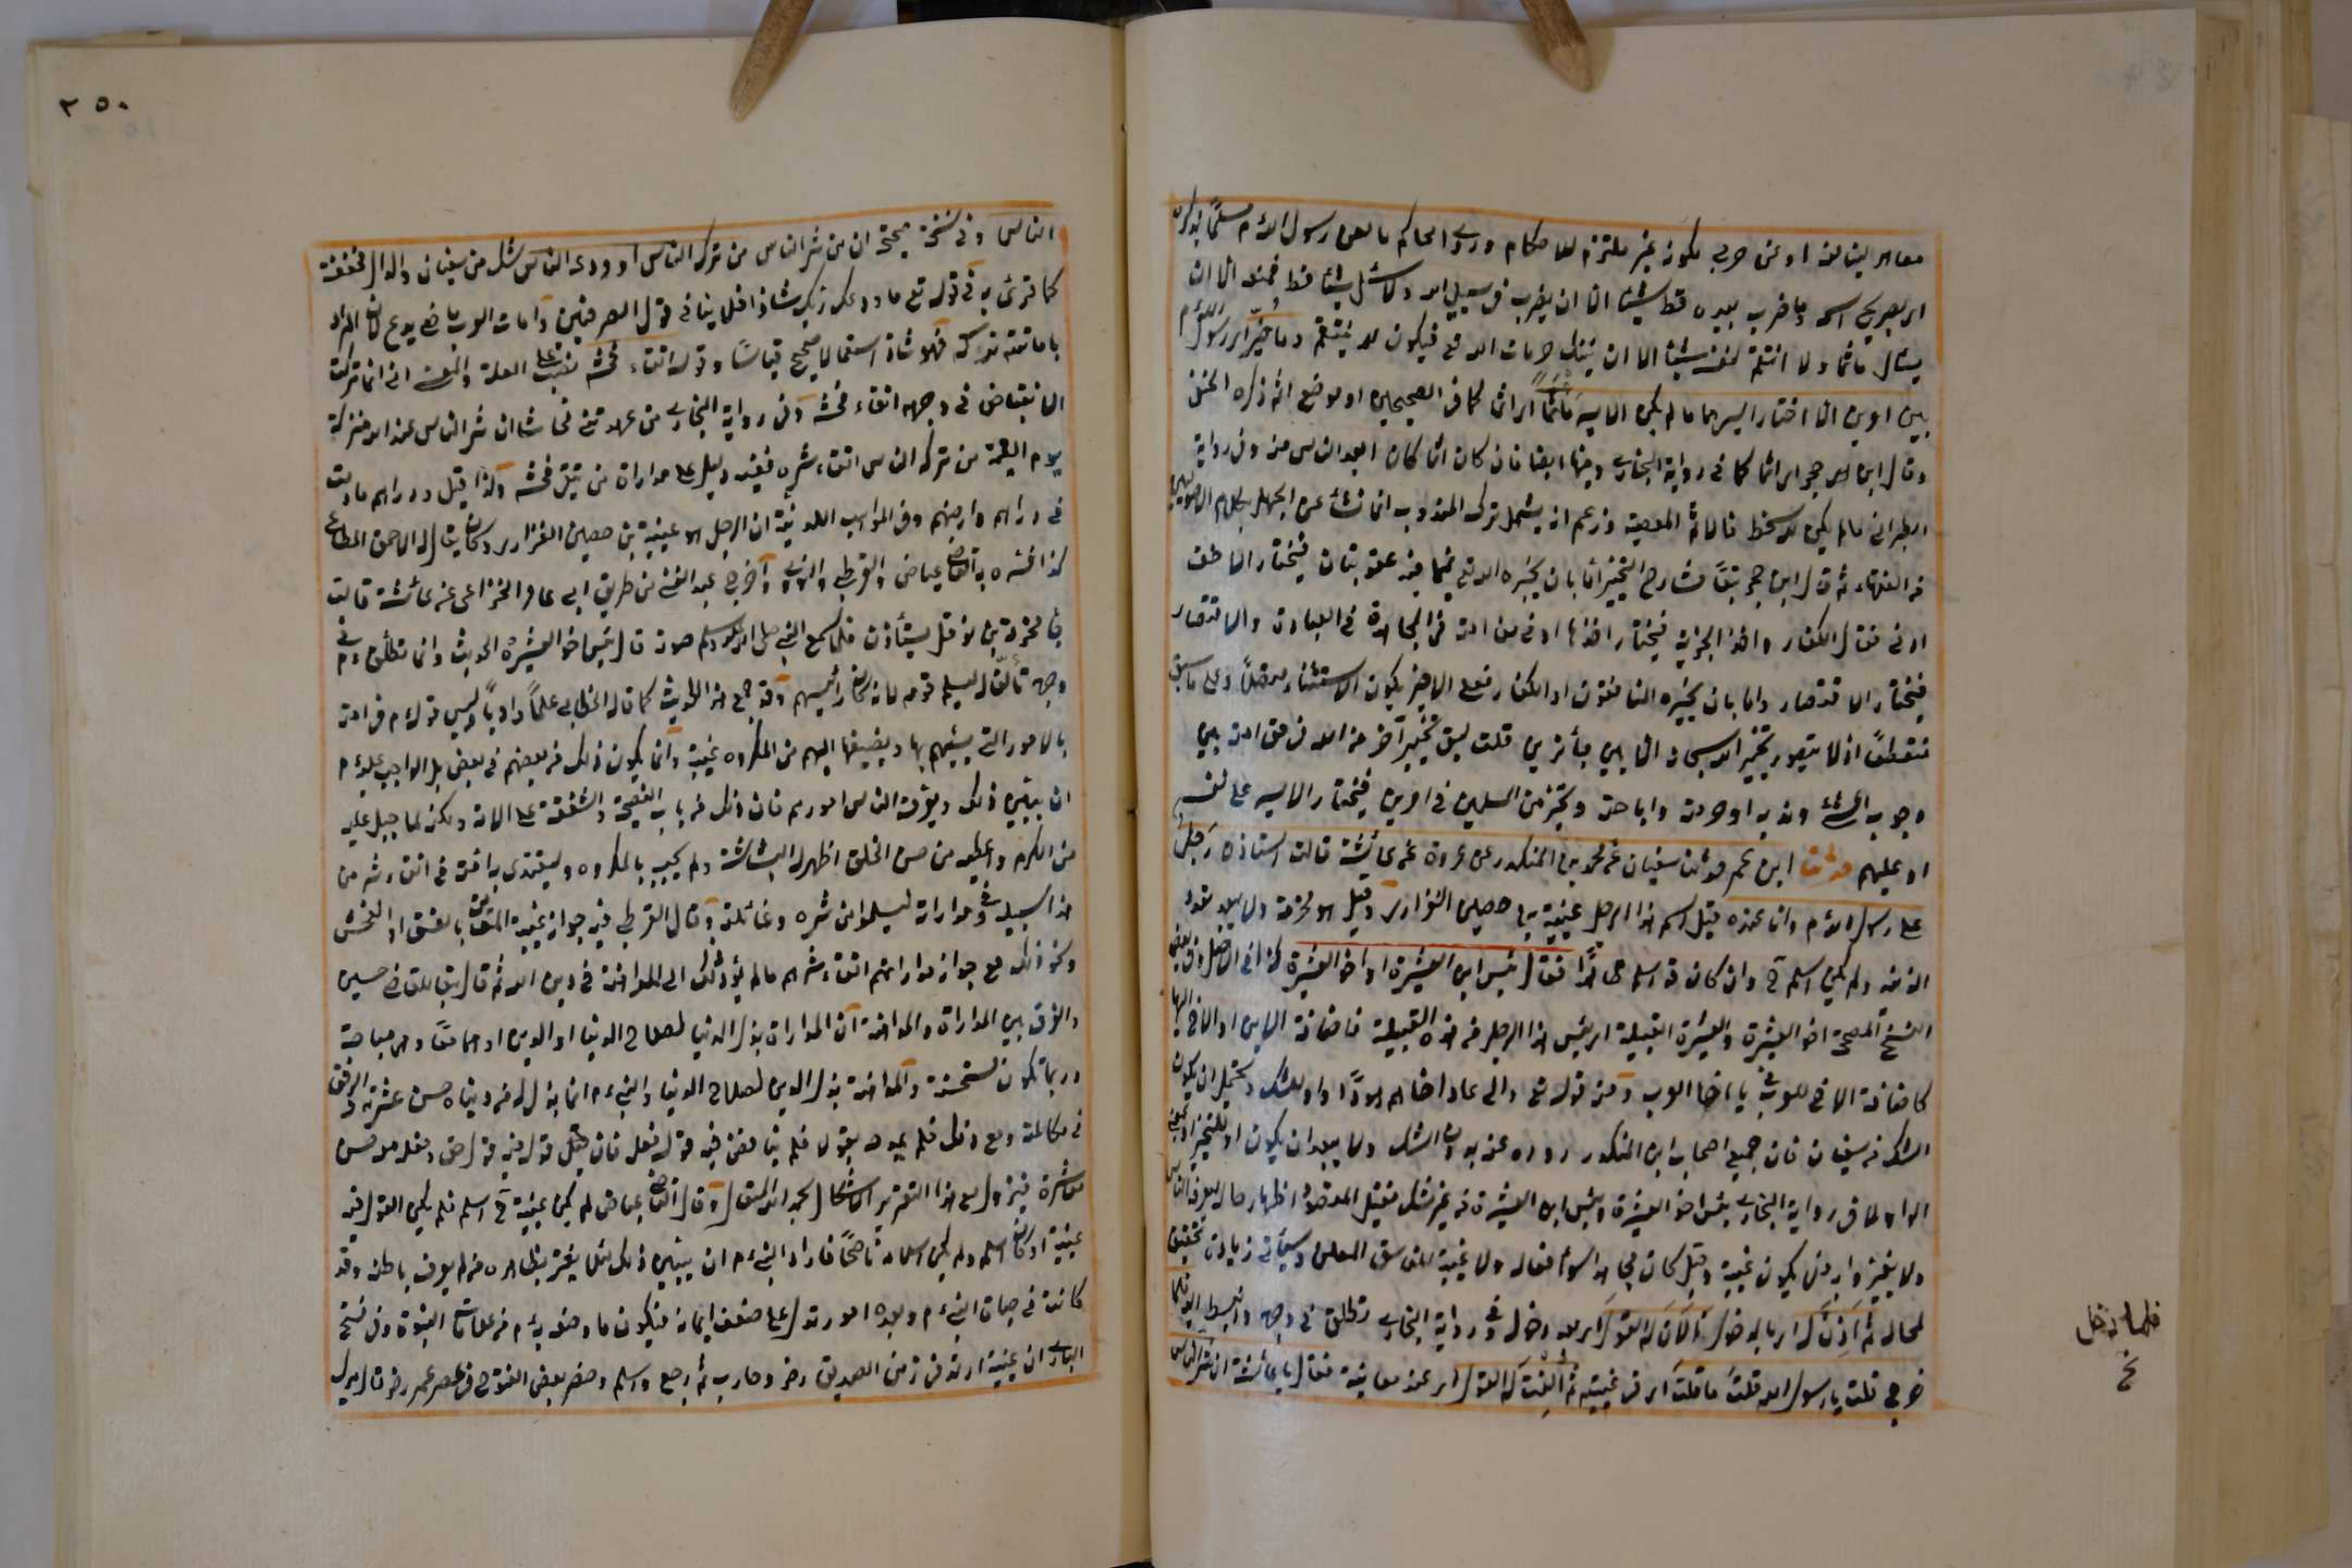 معاهد لينا لهذا او غير حربي يكون غير ملتزم للاحكام وروى الحاكم ما لعن رسول الله م مسلماً بذكره
اى بصريح اسمه وما ضرب بيده قط شيئا الا ان يضرب فى سبيل الله ولا سئل شيئا قط فمنعه الا ان
يسأل مأثما ولا انتقم لنفسه شيئا الا ان تنتهك حرمات الله تع فيكون لله ينتقم وما خير اى رسول الله م
بين امرين الا اختار ايسرهما ما لم يكن الايسر مأثماً اى اثما كما فى الصحيحين او موضع اثم ذكره الحنفى
وقال ابن حجر اى اثما كما فى رواية البخارى وفيها ايضا فان كان اثما كان ابعد الناس منه وفى رواية
الطبرانى ما لم يكن لله سخط فالاثم المعصية وزعم انه يشمل ترك المندوب انما نشأ عن الجهل بكلام الاصوليين
فى الفقهاء ثم قال ابن حجر تبعاً لشارح التخيير اما بان يخيره الله تع فيما فيه عقوبتان فيختار الاخف
او فى قتال الكفار واخذ الجزية فيختار اخذها او فى حق امته فى المجاهدة فى العبادة والاقتصار
فيختار الاقتصار واما بان يخيره المنافقون او الكفار فعلى الاخير يكون الاستثناء متصلاً وعلى ما سبق
منقطعاً اذ لا يتصور تخيير الله سبحانه الا بين جائزين قلت ليس تخيير آخر من الله فى حق امته بين
وجوب الشئ وندبه او حرمته واباحته وتخيير من المسلمين فى امرين فيختار الايسر على نفسه
او عليهم حدثنا ابن ابى عمر حدثنا سفيان عن محمد بن المنكدر عن عروة عن عائشة قالت استأذن رجل
على رسول الله م وانا عنده قيل اسم هذا الرجل عيينة بن حصين الفزارى وقيل هو مخرمة ولا يبعد تعدد
القصة ولم يكن اسلم ح وان كان قد اسلم ظاهراً فقال بئس ابن العشيرة او اخو العشيرة كذا فى الاصل وفى بعض
النسخ المصححة اخو العشيرة والعشيرة القبيلة اى بئس هذا الرجل من هذه القبيلة فاضافة الابن او الاخ اليها
كاضافة الاخ للعرب فى يا اخا العرب ومنه قوله تع والى عاد اخاهم هودا واو للشك ويحتمل ان يكون
الشك من سفيان فان جميع اصحاب ابن المنكدر رووه عنه بدون الشك ولا يبعد ان يكون او للتخيير او بمعنى
الواو لما فى رواية البخارى بئس اخو العشيرة وبئس ابن العشيرة من غير شك فقيل المقصود اظهار حاله ليعرفه الناس
ولا يغتر به وليس يكون غيبة وقيل كان مجاهرا بسوء افعاله ولا غيبة للفاسق المعلن وسيأتى زيادة تحقيق
لحاله ثم اذن له اى بالدخول فالان له القول اى بعد دخوله وفى رواية البخارى تطلق فى وجهه وانبسط اليه فلما
خرج قلت يا رسول الله قلت ما قلت اى فى غيبته ثم النت له القول اى عند معاينته فقال يا عائشة ان شر الناس
فلما دخل
خ
٢٥٠
الناس وفى نسخة صحيحة ان من شر الناس من تركه الناس او ودعه الناس شك من سفيان والدال مخففة
كما قرئ به فى قوله تع ما ودعك ربك شاذا فلا ينافى قول الصرفيين وامات العرب ماضى يدع لان المراد
باماتته ندرته فهو شاذ استعمالا صحيح قياسًا وقوله اتقاء فحشه نصب على العلة والمعنى انى انما تركت
الانقباض فى وجهه اتقاء فحشه وفى رواية البخارى متى عهدتنى فحاشا ان شر الناس عند الله منزلة
يوم القيمة من تركه الناس اتقاء شره ففيه دليل على مداراة من يتقى فحشه ولذا قيل ودارهم ما دمت
فى دارهم وارضهم وفى المواهب اللدنية ان الرجل هو عيينة بن حصين الفزارى وكان يقال له الاحمق المطاع
كذا فسره به القاضى عياض والقرطبى والنووى واخرج عبد الغنى من طريق ابى عامر الخزاعى عن عائشة قالت
جاء مخرمة بن نوفل يستأذن فلما سمع النبى صلى الله عليه وسلم صوته قال بئس اخو العشيرة الحديث وانما تطلق م فى
وجهه تألفا له ليسلم قومه لانه كان رئيسهم وقد جمع هذا الحديث كما قاله الخطابى علماً وادباً وليس قوله م فى امته
بالامور التى يسميهم بها ويضيفها اليهم من المكروه غيبة وانما يكون ذلك من بعضهم فى بعض بل الواجب عليه م
ان يبين ذلك ويعرف الناس امورهم فان ذلك من باب النصيحة والشفقة على الامة ولكنه لما جبل عليه
من الكرم واعطيه من حسن الخلق اظهر له البشاشة ولم يجبه بالمكروه وليقتدى به امته فى اتقاء شر من
هذا سبيله وفى مداراته ليسلموا من شره وغائلته وقال القرطبى فيه جواز غيبة المعلن بالفسق او الفحش
ونحو ذلك مع جواز مداراتهم اتقاء شرهم ما لم يؤد ذلك الى المداهنة فى دين الله ثم قال تبعا للقاضى حسين
والفرق بين المداراة والمداهنة ان المداراة بذل الدنيا لصلاح الدنيا او الدين او هما معاً وهى مباحة
وربما تكون مستحسنة والمداهنة بذل الدين لصلاح الدنيا والنبى م انما بذل له من دنياه حسن عشرته والرفق
فى مكالمته ومع ذلك فلم يمدحه بقول فلم يناقض فيه قوله فعله فان قوله فيه قول حق وفعله معه حسن
معاشرة فيزول مع هذا التقرير الاشكال بحمد الله المتعال وقال القاضى عياض لم يكن عيينة ح اسلم فلم يكن القول فيه
غيبة او كان اسلم ولم يكن اسلامه ناصحًا فاراد النبى م ان يبين ذلك لئلا يغتر بظاهره من لم يعرف باطنه وقد
كانت فى حياة النبى م وبعده امور تدل على ضعف ايمانه فيكون ما وصفه به م من علامات النبوة وفى فتح
البارى ان عيينة ارتد فى زمن الصديق رضى وحارب ثم رجع واسلم وحضر بعض الفتوح فى عصر عمر رضى قال ميرك